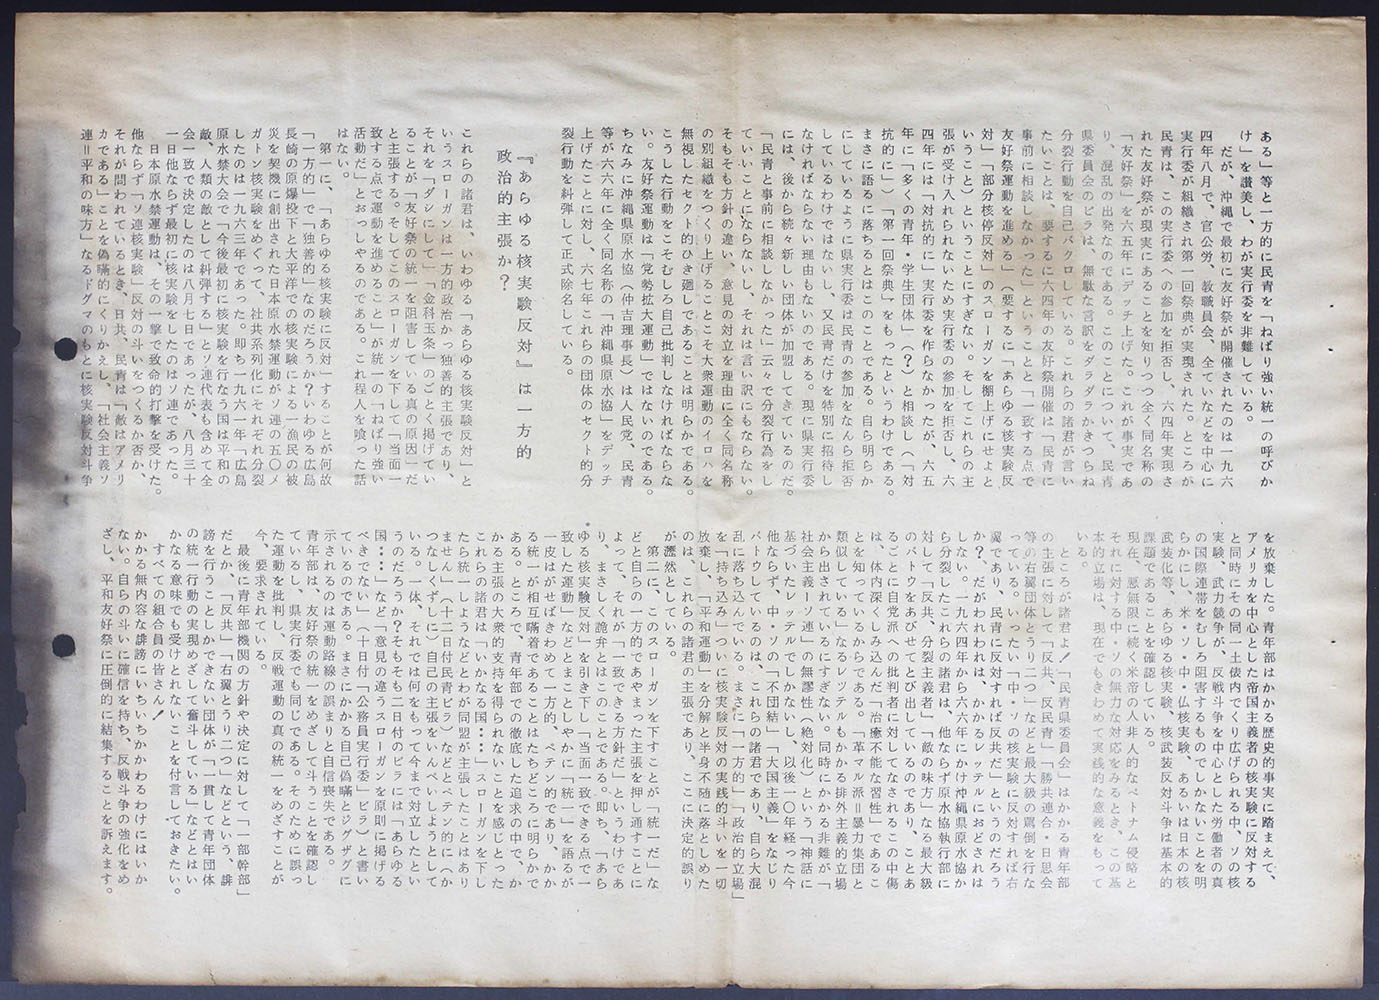 ある」等と一方的に民青を「ねばり強い統一の呼びか
け」を讃美し、わが実行委を非難している。
だが、沖縄で最初に友好祭が開催されたのは一九六
四年八月で、官公労、教職員会、全ていなどを中心に
実行委が組織され第一回祭典が実現された。ところが
民青は、この実行委への参加を拒否し、六四年実現さ
れた友好祭が現実にあることを知りつつ全く同名称の
「友好祭」を六五年にデッチ上げた。これが事実であ
り、混乱の出発なのである。このことについて、民青
県委員会のビラは、無駄な言訳をダラダラかきつらね
分裂行動を自己バクロしている。これらの諸君が言い
たいことは、要するに六四年の友好祭開催は「民青に
事前に相談しなかった」ということと「一致する点で
友好祭運動を進める」(要するに「あらゆる核実験反
対」「部分核停反対」のスローガンを棚上げにせよと
いうこと)ということにすぎない。そしてこれらの主
張が受け入れられないため実行委の参加を拒否し、六
四年には「対抗的に」実行委を作らなかったが、六五
年に「多くの青年・学生団体」(?)と相談し(「対
抗的に」)「第一回祭典」をもったというわけである。
まさに語るに落ちるとはこのことである。自ら明らか
にしているように県実行委は民青の参加をなんら拒否
しているわけではないし、又民青だけを特別に招待し
なければならない理由もないのである。現に県実行委
には、後から続々新しい団体が加盟してきているのだ。
「民青と事前に相談しなかった」云々で分裂行為をし
ていいことにならないし、それは言い訳にもならない。
そもそも方針の違い、意見の対立を理由に全く同名称
の別組織をつくり上げることこそ大衆運動のイロハを
無視したセクト的ひき廻しであることは明らかである。
こうした行動をこそむしろ自己批判しなければならな
い。友好祭運動は「党勢拡大運動」ではないのである。
ちなみに沖縄県原水協(仲吉理事長)は人民党、民青
等が六六年に全く同名称の「沖縄県原水協」をデッチ
上げたことに対し、六七年これらの団体のセクト的分
裂行動を糾弾して正式除名している。
『あらゆる核実験反対』は一方的
政治的主張か?
これらの諸君は、いわゆる「あらゆる核実験反対」と
いうスローガンは一方的政治かつ独善的主張であり、
それを「ダシにして」「金科玉条」のごとく掲げてい
ることが「友好祭の統一を阻害している真の原因」だ
と主張する。そしてこのスローガンを下して「当面一
致する点で運動を進めること」が統一の「ねばり強い
活動だ」とおっしゃるのである。これ程人を喰った話
はない。
第一に、「あらゆる核実験に反対」することが何故
「一方的」で「独善的」なのだろうか?いわゆる広島
長崎の原爆投下と太平洋での核実験による一漁民の被
災を契機に創出された日本原水禁運動がソ連の五〇メ
ガトン核実験をめぐって、社共系列化にそれぞれ分裂
したのは一九六三年であった。即ち一九六一年「広島
原水禁大会で「今後最初に核実験を行なう国は平和の
敵、人類の敵として糾弾する」とソ連代表も含めて全
会一致で決定したのは八月七日であったが、八月三十
一日他ならず最初に核実験をしたのはソ連であった。
日本原水禁運動は、その一撃で致命的打撃を受けた。
他ならぬ「ソ連核実験」反対の斗いをつくるか否か、
それが問われているとき、日共、民青は「敵はアメリ
カである」ことを偽瞞的にくりかえし、「社会主義ソ
連=平和の味方」なるドグマのもとに核実験反対斗争
を放棄した。青年部はかかる歴史的事実に踏まえて、
アメリカを中心とした帝国主義者の核実験に反対する
と同時にその同一土俵内でくり広げられる中、ソの核
実験、武力競争が、反戦斗争を中心とした労働者の真
の国際連帯をむしろ阻害するものでしかないことを明
らかにし、米・ソ・中・仏核実験、あるいは日本の核
武装化等、あらゆる核実験、核武装反対斗争は基本的
課題であることを確認している。
現在、悪無限に続く米帝の人非人的なベトナム侵略と
それに対する中・ソの無力な対応をみるとき、この基
本的立場は、現在でもきわめて実践的な意義をもって
いる。
ところが諸君よ!「民青県委員会」はかかる青年部
の主張に対して「反共、反民青」「勝共連合・日思会
等の右翼団体とうり二つ」などと最大級の罵倒を行な
っている。いったい「中・ソの核実験に反対すれば右
翼であり、民青に反対すれば反共だ」というのだろう
か?、だがわれわれは、かかるレッテルにおどされは
しない。一九六四年から六六年にかけ沖縄県原水協か
ら分裂したこれらの諸君は、他ならぬ原水協執行部に
対して「反共、分裂主義者」「敵の味方」なる最大級
のバトウをあびせてとび出しているのであり、ことあ
るごとに自党派への批判者に対してなされるこの中傷
は、体内深くしみ込んだ「治癒不能な習性」であるこ
とを知っているからである。「革マル派=暴力集団と
類似している」なるレッテルもかかる排外主義的立場
から出されているにすぎない。同時にかかる非難が「
社会主義=ソ連」の無謬性(絶対化)という「神話に
基づいたレッテルでしかないし、以後一〇年経った今
他ならず、中・ソの「不団結」「大国主義」をなじり
バトウしているのは、これらの諸君であり、自ら大混
乱に落ち込んでいる。まさに「一方的」「政治的立場」
を「持ち込み」ついに核実験反対の実践的斗いを一切
放棄し、「平和運動」を分解と半身不随に落としめた
のは、これらの諸君の主張であり、ここに決定的誤り
が歴然としている。
第二に、このスローガンを下すことが「統一だ」な
どと自らの一方的であやまった主張を押し通すことに
よって、それが「一致できる方針だ」というわけであ
り、まさしく詭弁とはこのことである。即ち、「あら
ゆる核実験反対」を引き下し「当面一致できる点で一
致した運動」などとまことしやかに「統一」を語るが
一皮はがせばきわめて一方的、ペテン的であり、かか
る統一が相互瞞着であることはたちどころに明らかで
ある。ところで、青年部での徹底した追求の中で、か
かる主張の大衆的支持を得られないことを感じとった
これらの諸君は「いかなる国・・・・」スローガンを下し
たら統一しようなどとわが同盟が主張したことはあり
ません」(十二日付民青ビラ)などとペテン的に(か
つなしくずしに)自己の主張をいんぺいしようとして
いる。一体、それでは何をもって今まで対立したとい
うのだろうか?そもそも二日付のビラには「あらゆる
国・・・・」など「意見の違うスローガンを原則に掲げる
べきでない」(十日付「公務員実行委」ビラ)と書い
ているのである。まさにかかる自己偽瞞とジグザグに
示されるのは運動路線の誤まりと自信喪失である。
青年部は、友好祭の統一をめざして斗うことを確認し
ているし、県実行委でも同じである。そのために誤っ
た運動を批判し、反戦運動の真の統一をめざすことが
今、要求されている。
最後に青年部機関の方針や決定に対して「一部幹部」
だとか、「反共」「右翼とうり二つ」などという、誹
謗を行うことしかできない団体が「一貫して青年団体
の統一行動の実現めざして奮斗している」などとはい
かなる意味でも受けとれないことを付言しておきたい。
すべての組合員の皆さん!
かかる無内容な誹謗にいちいちかかわるわけにはいか
ない。自らの斗いに確信を持ち、反戦斗争の強化をめ
ざし、平和友好祭に圧倒的に結集することを訴えます。